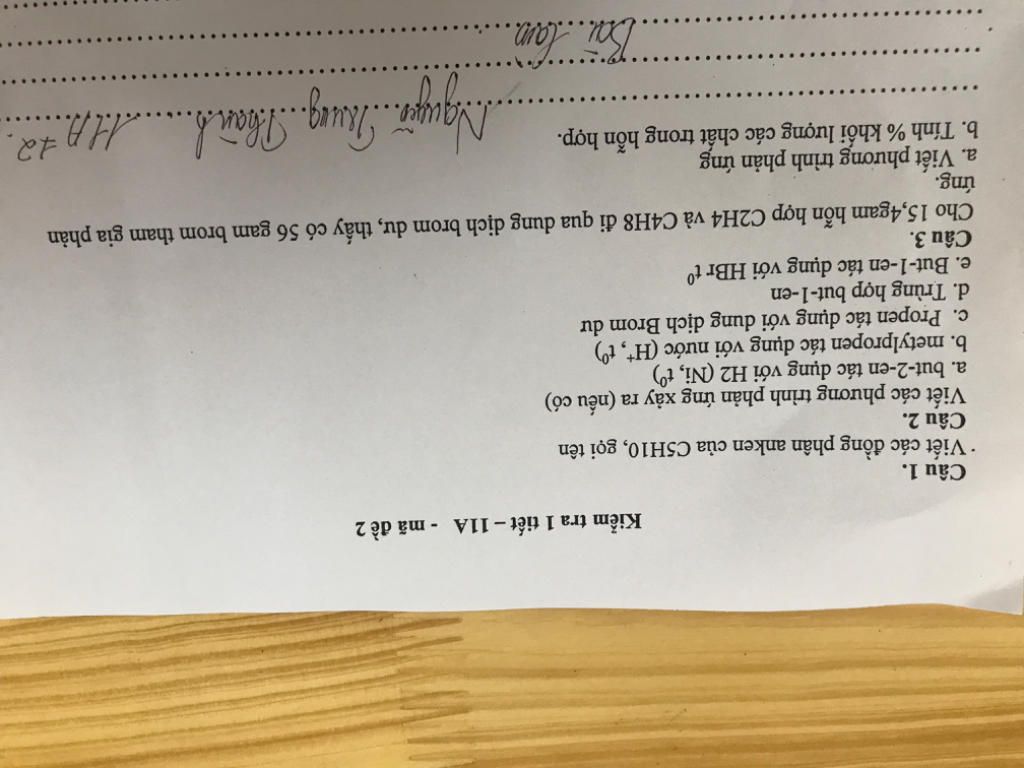 Kiểm tra 1 tiết – 11A - mã đề 2
Câu 1.
Viết các đồng phân anken của C5H10, gọi tên
Câu 2.
Viết các phương trình phản ứng xảy ra (nếu có)
a. but-2-en tác dụng với H2 (Ni, t⁰)
b. metylpropen tác dụng với nước (H⁺, t⁰)
c. Propen tác dụng với dung dịch Brom dư
d. Trùng hợp but-1-en
e. But-1-en tác dụng với HBr t⁰
Câu 3.
Cho 15,4gam hỗn hợp C2H4 và C4H8 đi qua dung dịch brom dư, thấy có 56 gam brom tham gia phản
ứng.
a. Viết phương trình phản ứng
b. Tính % khối lượng các chất trong hỗn hợp.
Nguyễn Trung Thành 11A12
Bài làm